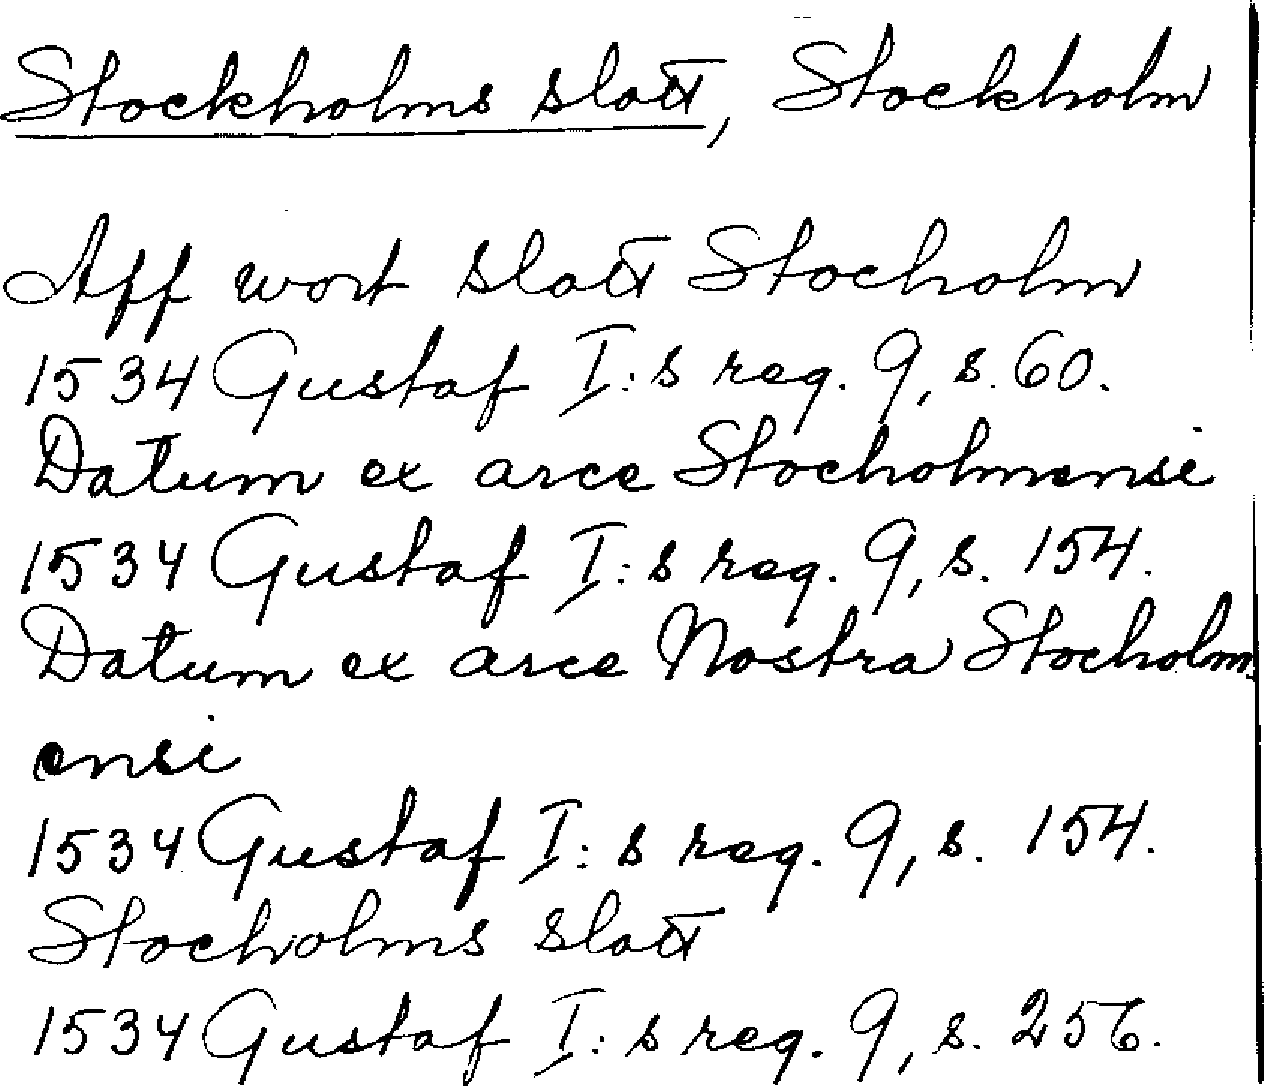 Stockholms slott, Stockholm
Aff wort slott Stocholm
1534 Gustaf I:s reg. 9, s. 60.
Datum ex arce Stocholmensi
1534 Gustaf I:s reg. 9, s. 154.
Datum ex arce Nostra Stocholm
ensi
1534 Gustaf I:s reg. 9, s. 154.
Stocholms slott
1534 Gustaf I:s reg. 9, s. 256.